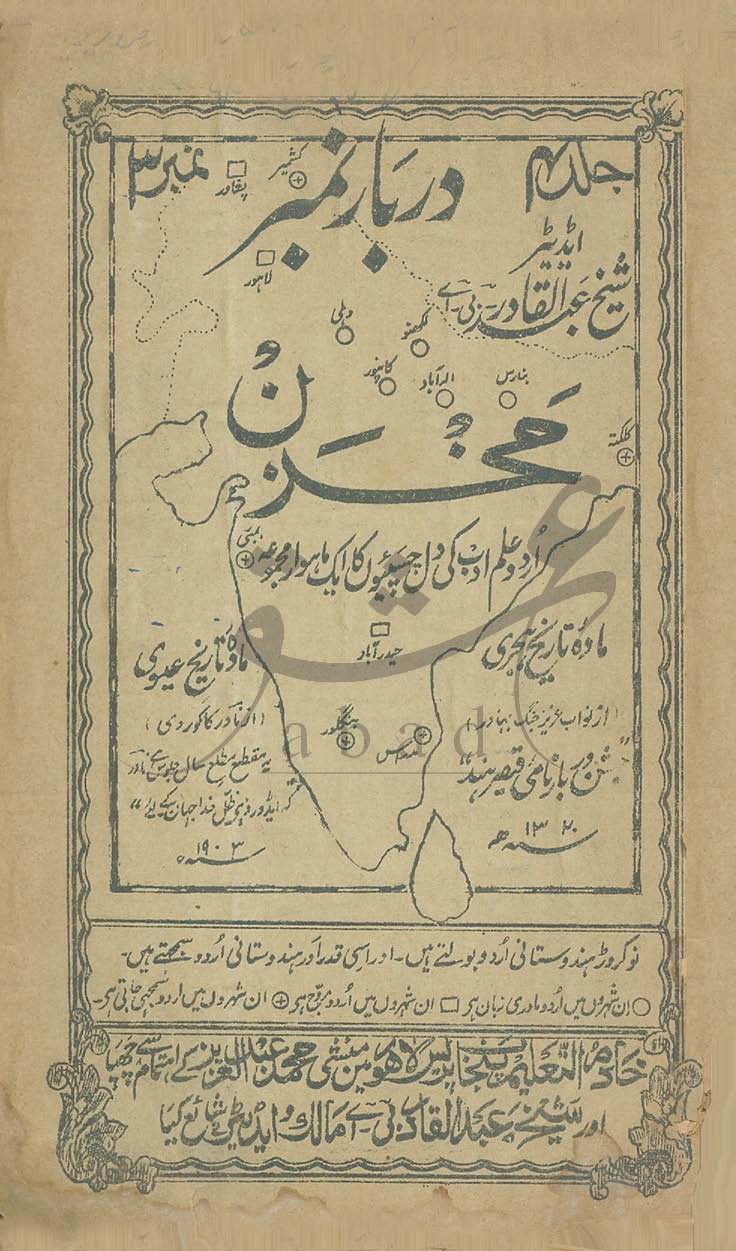 جلد ۴
دربار نمبر
نمبر ۳
کشمیر
پشاور
لاہور
ایڈیٹر
شیخ عبدالقادر۔ بی۔ اے
دہلی
لکھنؤ
کانپور
الہ آباد
بنارس
کلکتہ
مخزن
بمبئی
اُردو علم ادب کی دل چسپیوں کا ایک ماہوار مجموعہ
حیدرآباد
مادۂ تاریخ ہجری
(از نواب عزیز جنگ بہادر)
جشن دربار نامی قیصر ہند
۱۳۲۰ ھ
مادۂ تاریخ عیسوی
(از نادر کاکوروی)
یہ مقطع مطلع سال جلوس ہے نادر
کہ ایڈورڈ ہیں ظل خدا جہان کے لئے
سنہ ۱۹۰۳ء
بنگلور
مدراس
نو کروڑ ہندوستانی اُردو بولتے ہیں۔ اور اسی قدر اَور ہندوستانی اُردو سمجھتے ہیں۔
ان شہروں میں اُردو مادری زبان ہی ان شہروں میں اُردو مروّج ہی ان شہروں میں اردو سمجھی جاتی ہی۔
خادم التعلیم پنجاب پریس لاہور مین منشی محمد عبدالعزیز کے اہتمام سے چھپا
اور شیخ عبدالقادر بی۔ اے مالک و ایڈیٹر نے شائع کیا
abad